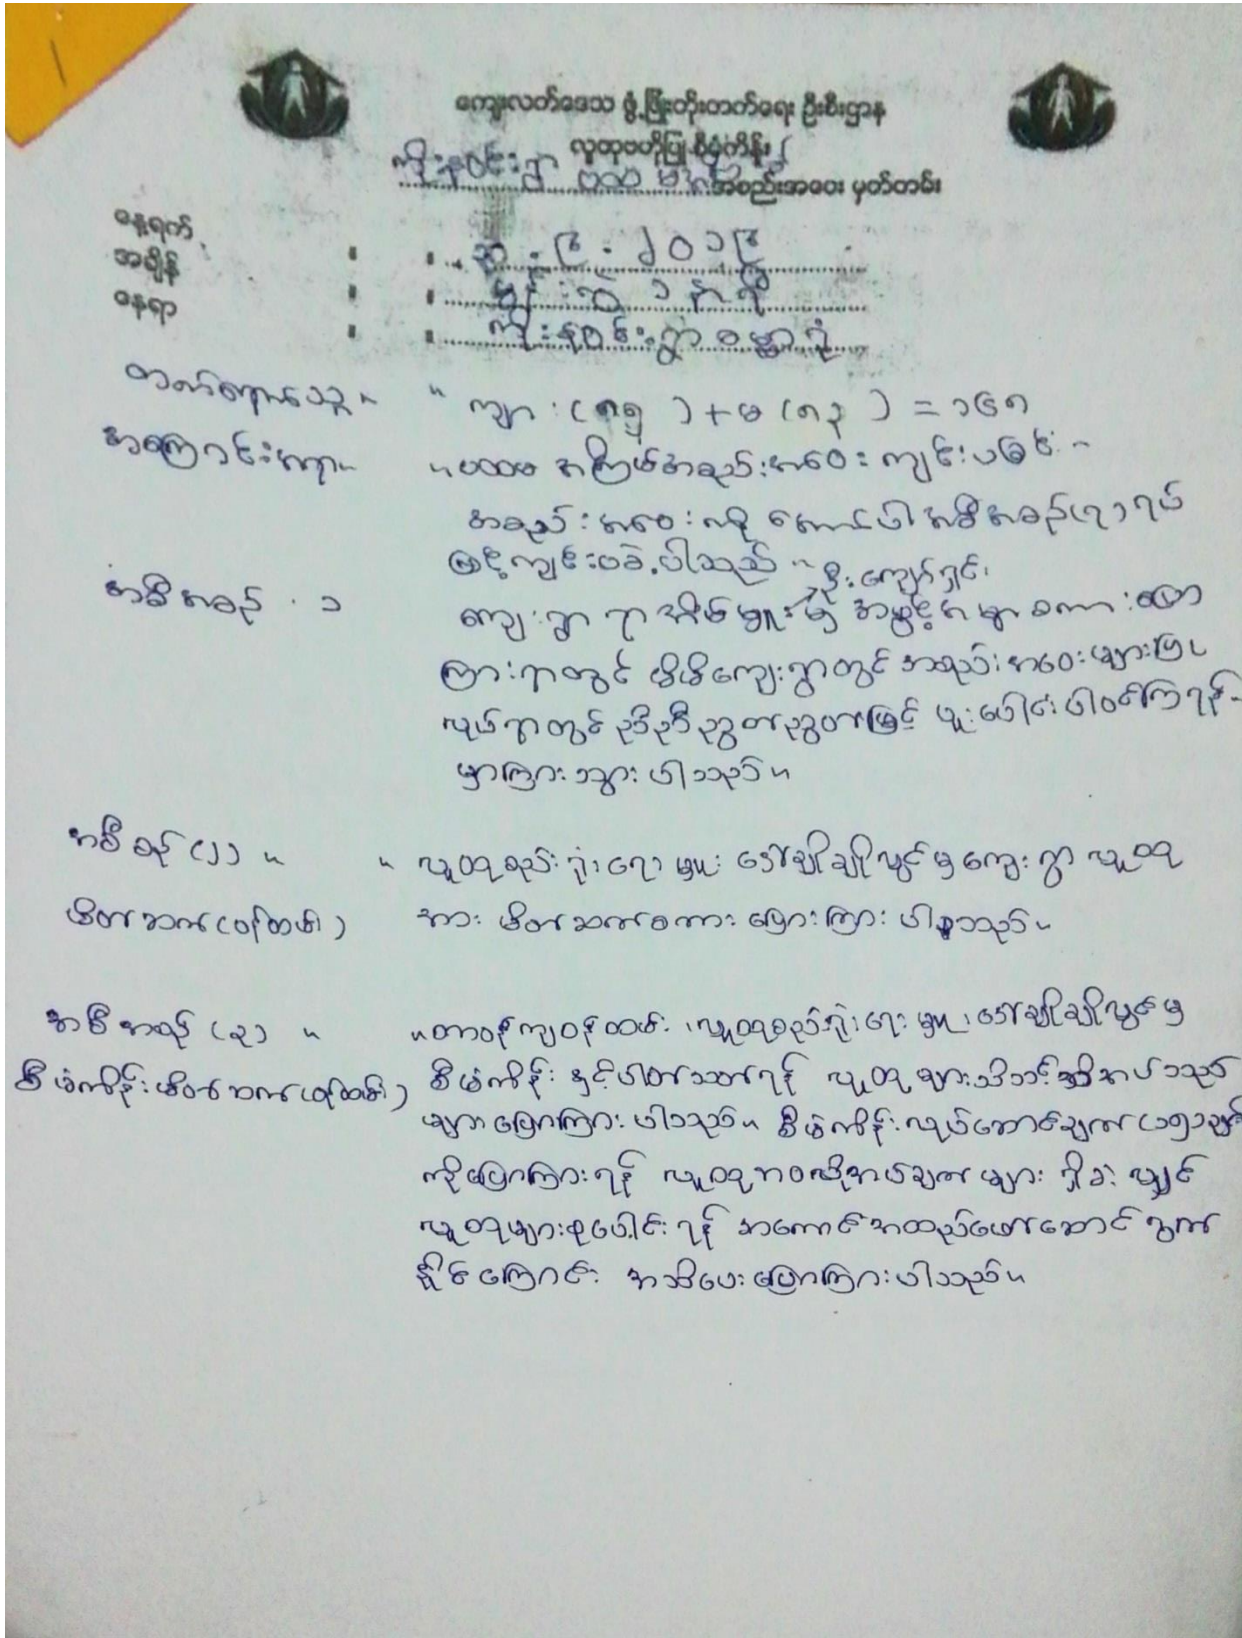 ကျေးလက်ဒေသ ဖွံ့ဖြိုးတိုးတက်ရေး ဦးစီးဌာန
လူထုဗဟိုပြု စီမံကိန်း
ကိုးနဝင်းရွာ ပထမ အစည်းအဝေး မှတ်တမ်း
နေ့ရက် : : . ၉ . ၂၀၁၉
အချိန် : : မွန်းလွဲ ၁ နာရီ
နေရာ : : ကိုးနဝင်းရွာ ဓမ္မာရုံ
တက်ရောက်သူ ။ ။ ကျား (၈၅) + မ (၈၃) = ၁၆၈
အကြောင်းအရာ ။ ။ ပထမ အကြိမ်အစည်းအဝေး ကျင်းပခြင်း
အစည်းအဝေးကို အောက်ပါအစီအစဉ်(၇)ရပ်
ဖြင့်ကျင်းပခဲ့ပါသည်။
အစီအစဉ် . ၁ ကျေးရွာ ရာအိမ်မှူး ဦးကျော်ရှင်းမှ အဖွင့်အမှာစကားပြော
ကြားရာတွင် မိမိကျေးရွာတွင် အစည်းအဝေးများပြု
လုပ်ရာတွင် ညီညီညွတ်ညွတ်ဖြင့် ပူးပေါင်းပါဝင်ကြရန်
မှာကြားသွားပါသည်။
အစီစဉ် (၂) ။ ။ လူထုစည်းရုံးရေးမှူး ဒေါ်ချိုချိုလွင်မှ ကျေးရွာ လူထု
မိတ်ဆက်(ဝန်ထမ်း) အား မိတ်ဆက်စကား ပြောကြားပါသည်။
အစီအစဉ် (၃) ။ ။ တာဝန်ကျဝန်ထမ်း၊ လူထုစည်းရုံးရေးမှူး၊ ဒေါ်ချိုချိုလွင်မှ
စီမံကိန်းမိတ်ဆက်(ဝန်ထမ်း) စီမံကိန်းနှင့်ပါတ်သတ်ရန် လူထုများသိသင့်သိအပ်သည်
များပြောကြားပါသည်။ စီမံကိန်းလုပ်ဆောင်ချက် (၁၅)ချက်
ကိုပြောကြားရန် လူထုဘဝလိုအပ်ချက်များ ရှိခဲ့လျှင်
လူထုများစုပေါင်းရန် အကောင်အထည်ဖော်ဆောင်ရွက်
နိုင်ကြောင်း အသိပေးပြောကြားပါသည်။